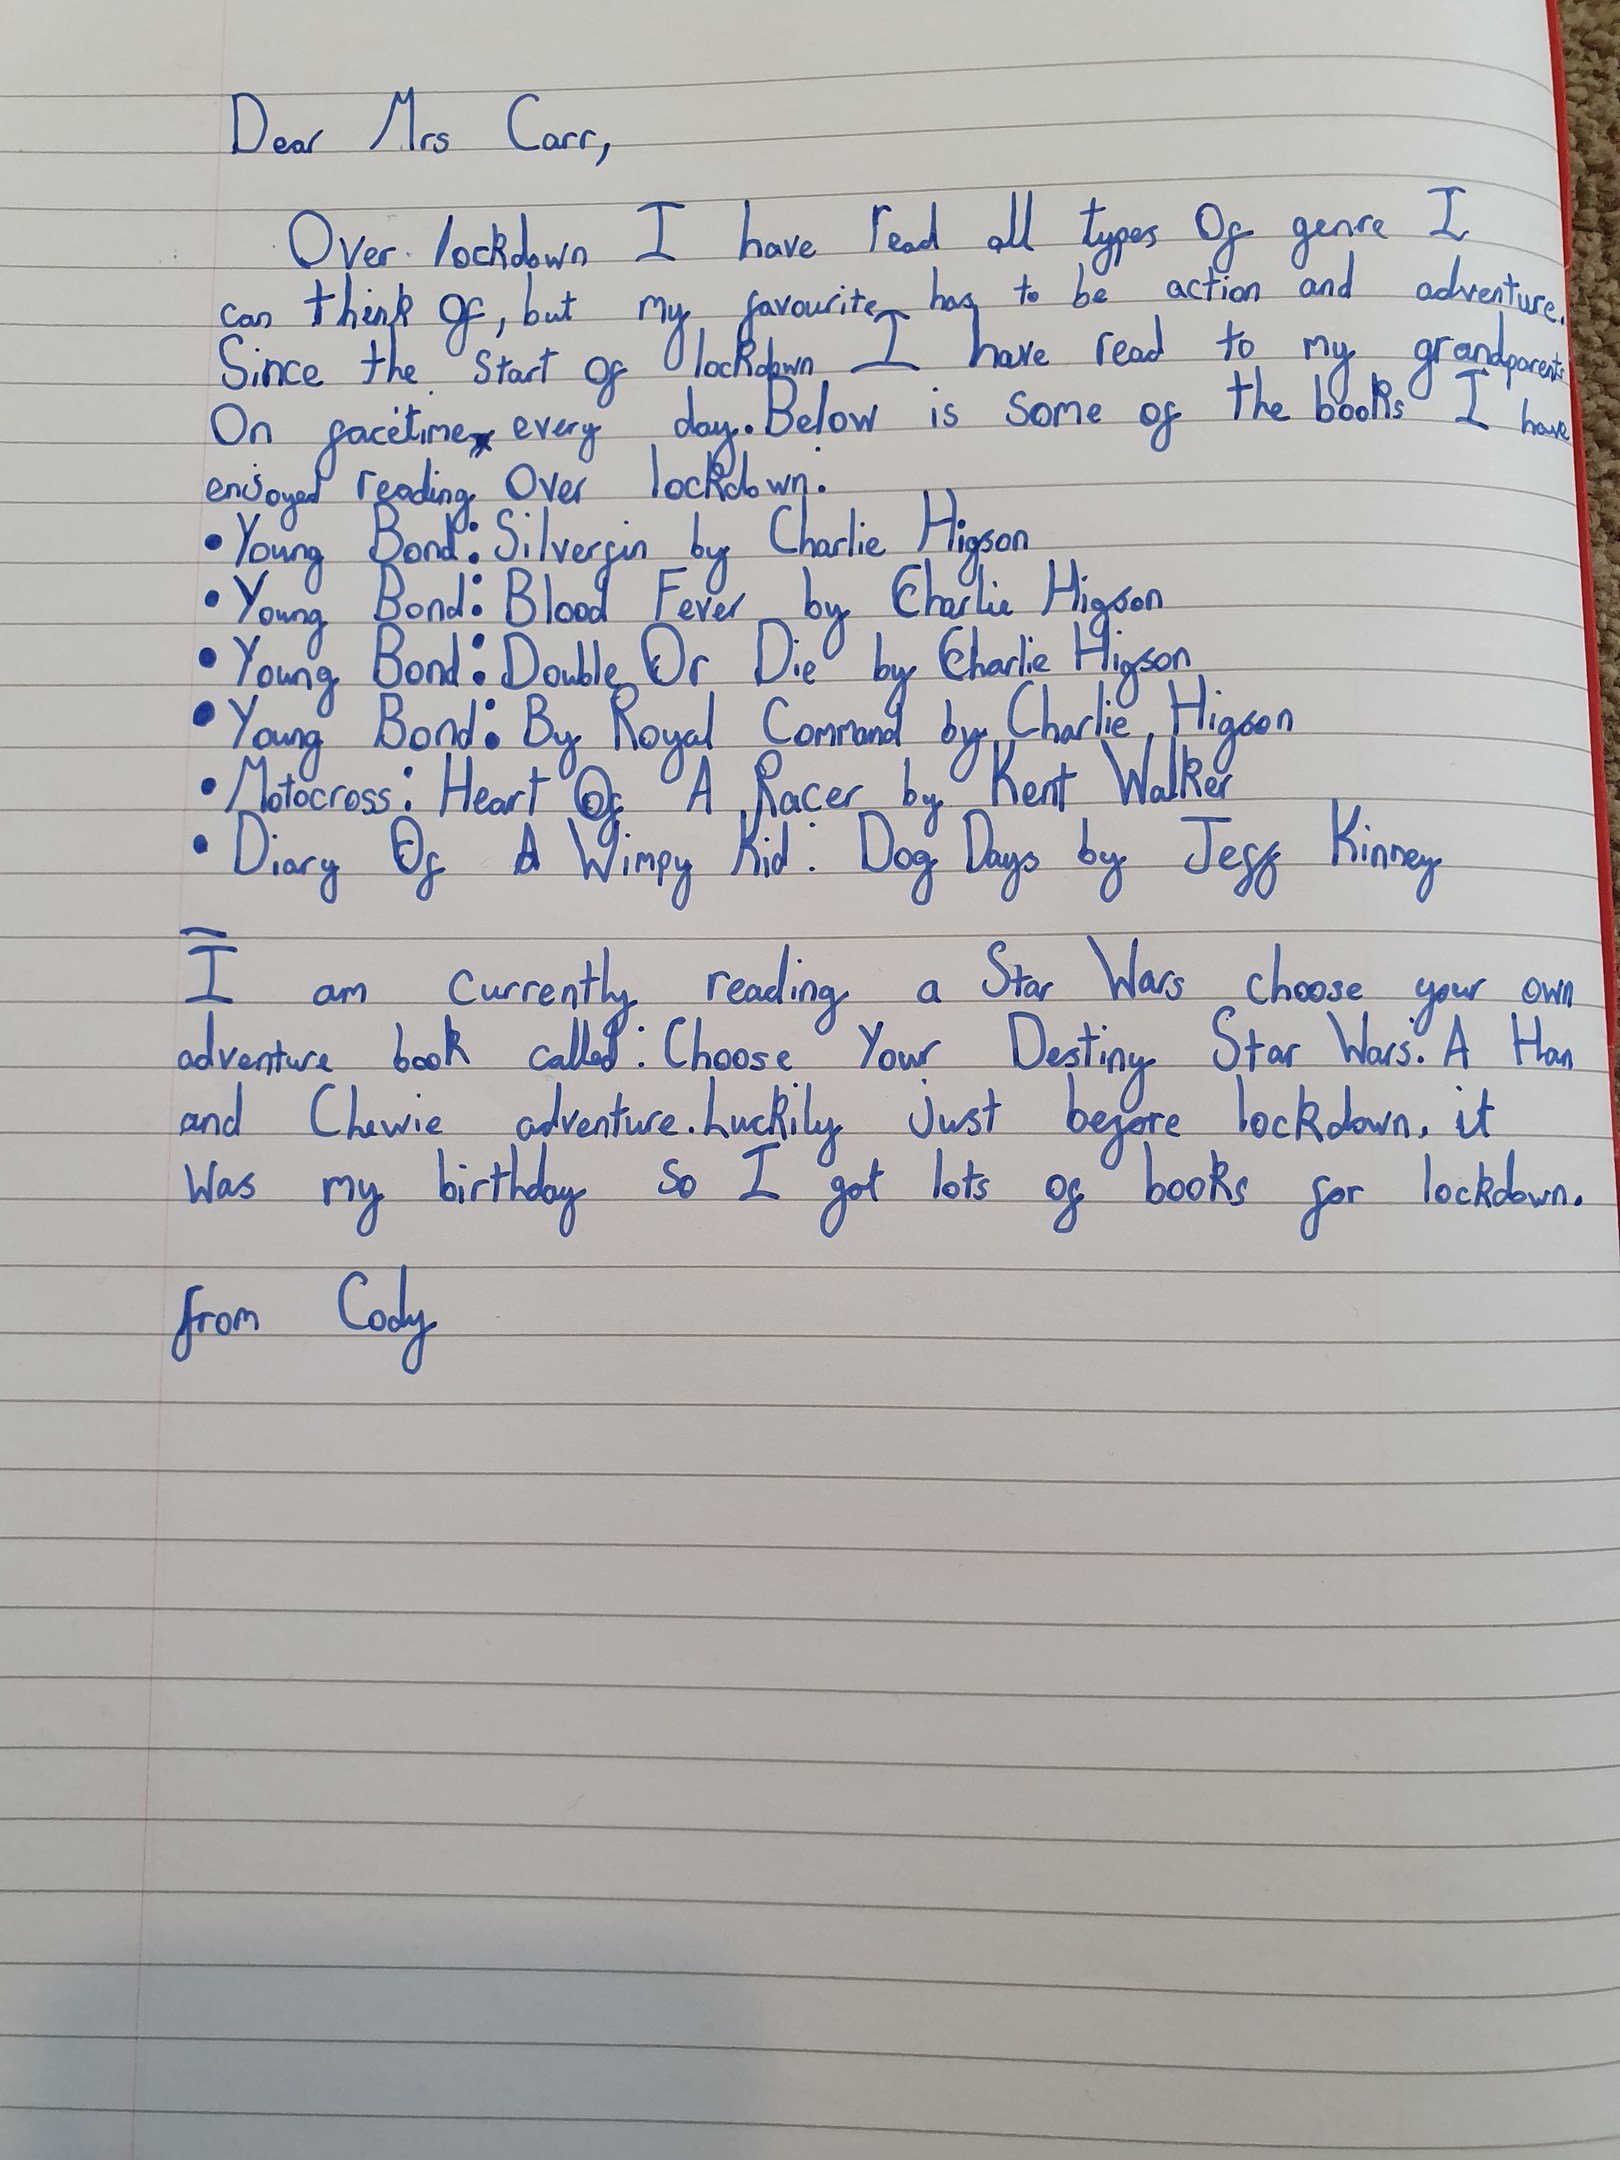 Dear Mrs Carr,
Over lockdown I have read all types Of genre I
can think Of, but my favourite has to be action and adventure.
Since the start Of lockdown I have read to my grandparents
On facetime every day. Below is some of the books I have
enjoyed reading Over lockdown:
• Young Bond: Silverfin by Charlie Higson
• Young Bond: Blood Fever by Charlie Higson
• Young Bond: Double Or Die by Charlie Higson
• Young Bond: By Royal Command by Charlie Higson
• Motocross: Heart Of A Racer by Kent Walker
• Diary Of A Wimpy Kid: Dog Days by Jeff Kinney
I am currently reading a Star Wars choose your own
adventure book called: Choose Your Destiny Star Wars: A Han
and Chewie adventure. Luckily just before lockdown, it
was my birthday so I got lots of books for lockdown.
from Cody